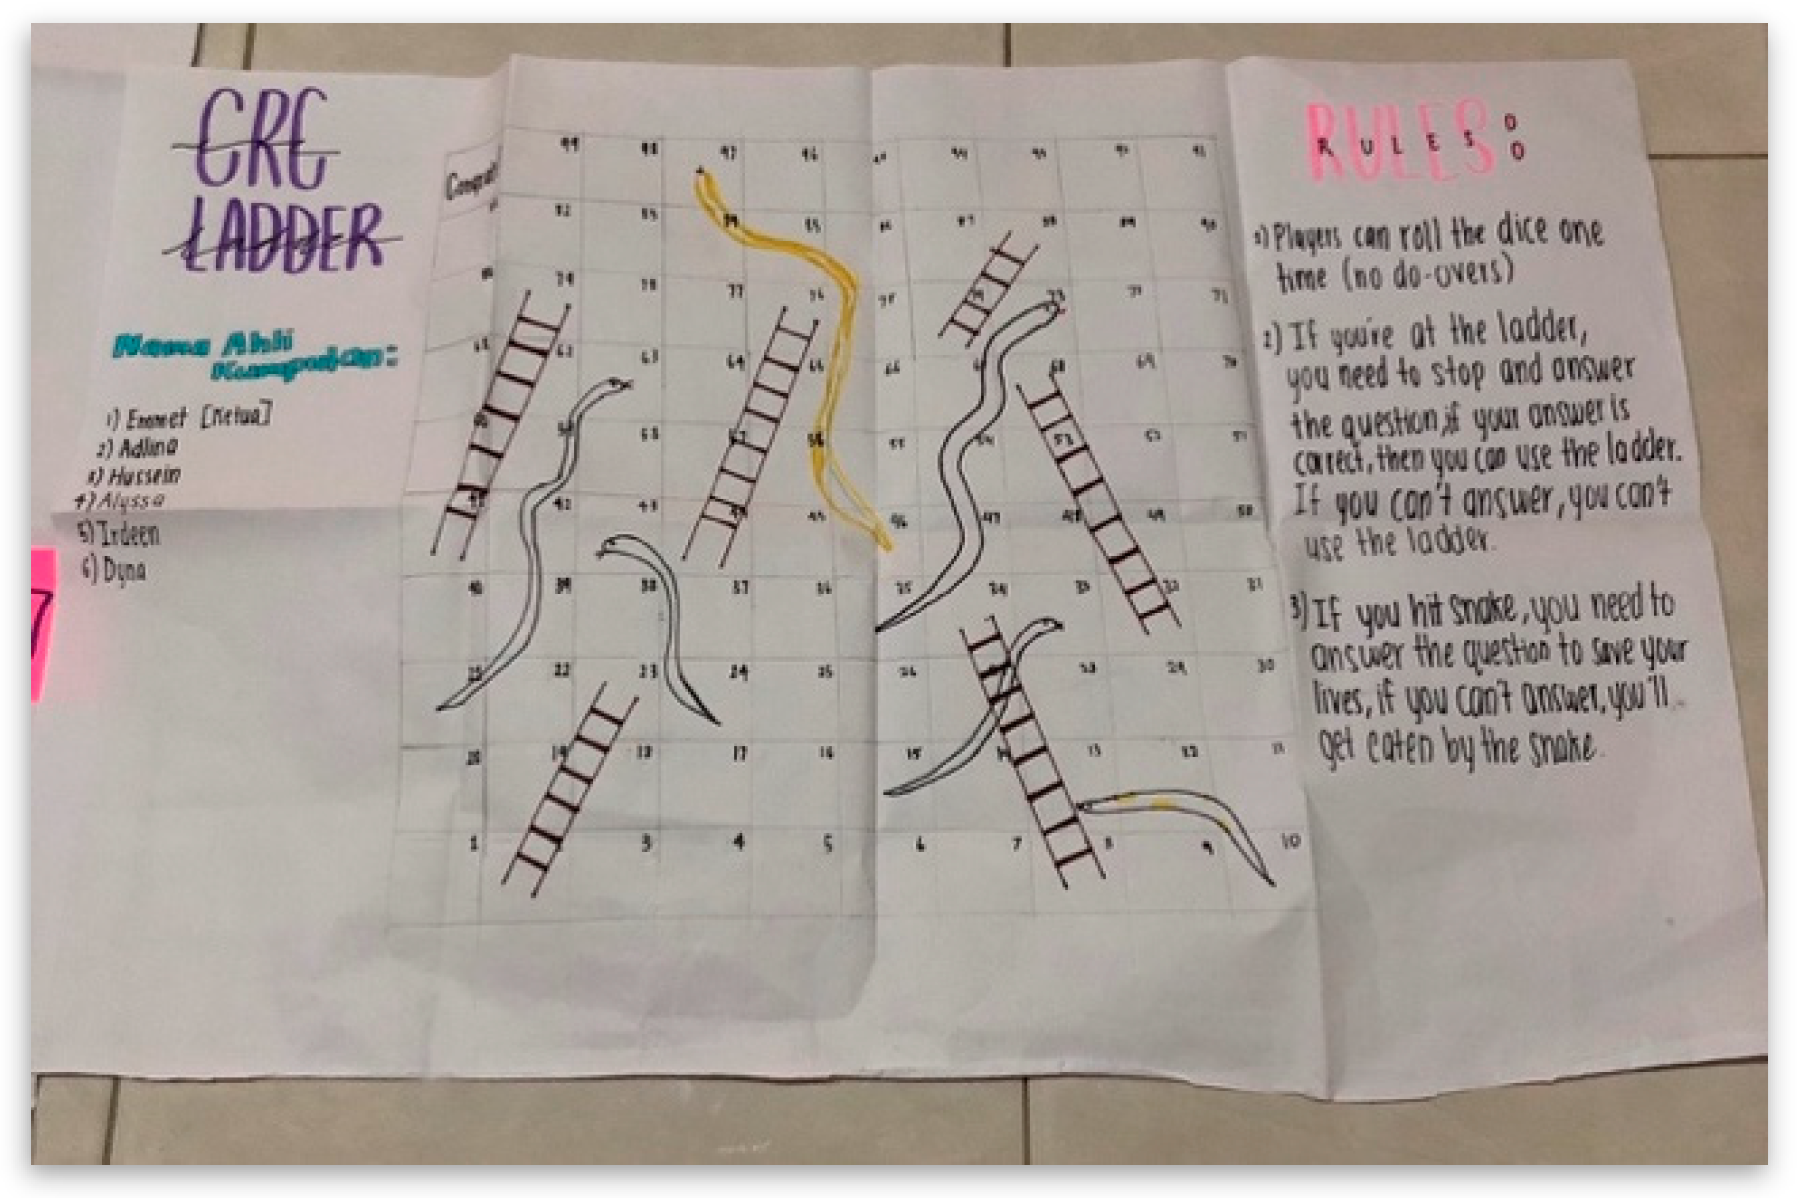 CRC
LADDER
Nama Ahli
Kumpulan:
1) Emmet [Ketua]
2) Adlina
3) Hussein
4) Alyssa
5) Irdeen
6) Dyna
99 98 97 96 94
79 77 76 73 71
62 63 64 66 68 69 70
42 43 47 49 50
40 39 38 37 36 35 34 33 32 31
22 23 24 25 26 28 29 30
20 19 18 17 16 15 14 13 12 11
1 3 4 5 6 7 8 9 10
RULES:
RULES
1) Players can roll the dice one
time (no do-overs)
2) If you're at the ladder,
you need to stop and answer
the question, if your answer is
correct, then you can use the ladder.
If you can't answer, you can't
use the ladder.
3) If you hit snake, you need to
answer the question to save your
lives, if you can't answer, you'll
get eaten by the snake.